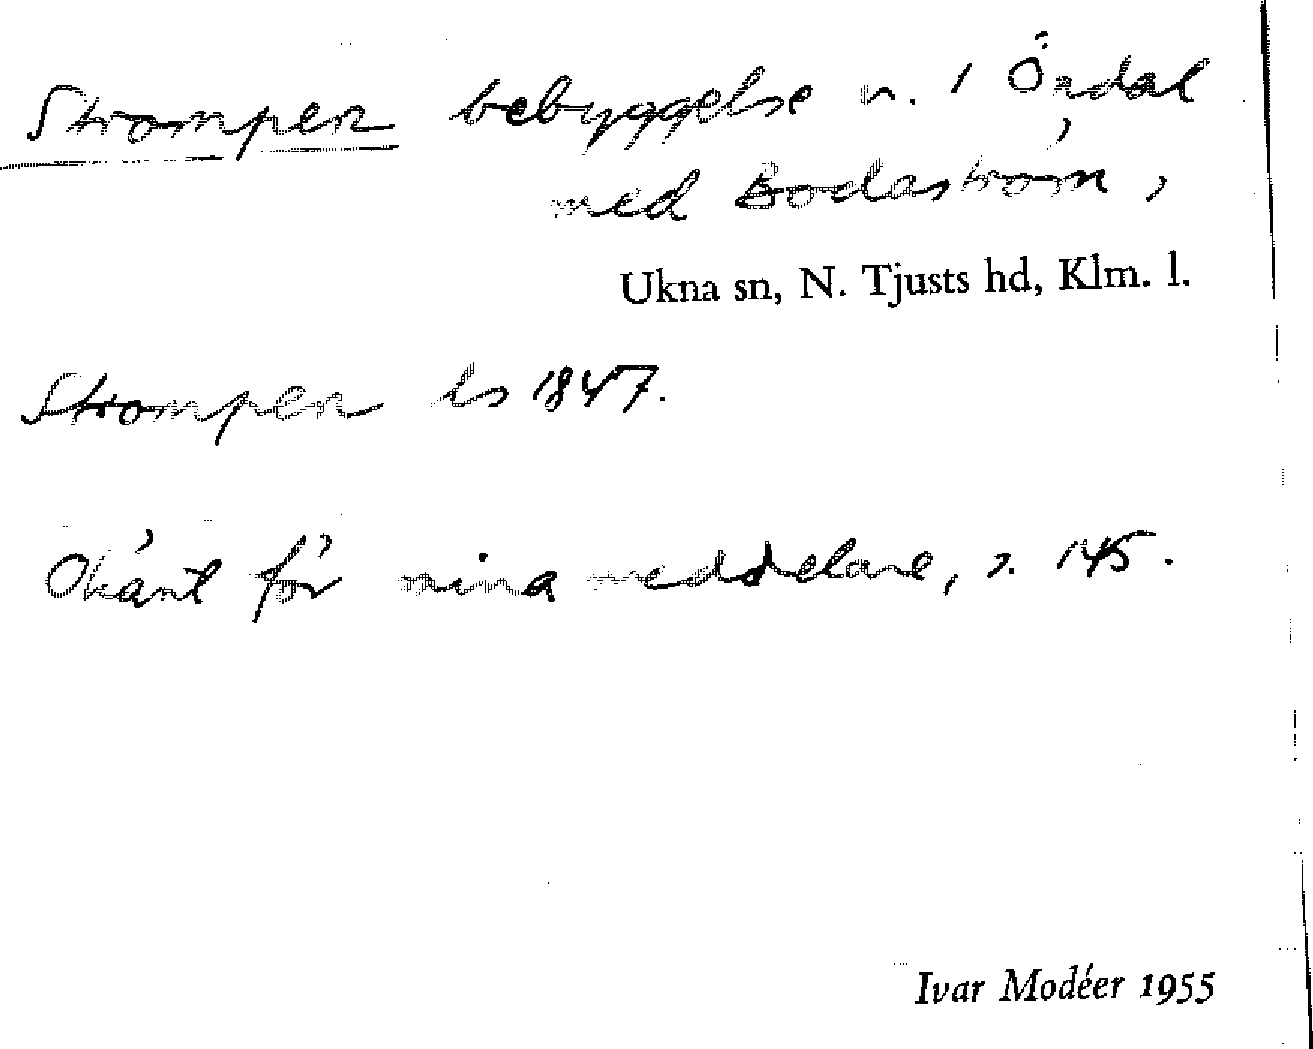 Strompen bebyggelse n. i Öndal
med Bodaström,
Ukna sn, N. Tjusts hd, Klm. l.
Strompen hs 1847.
Okänt för mina meddelare, s. 145.
Ivar Modéer 1955